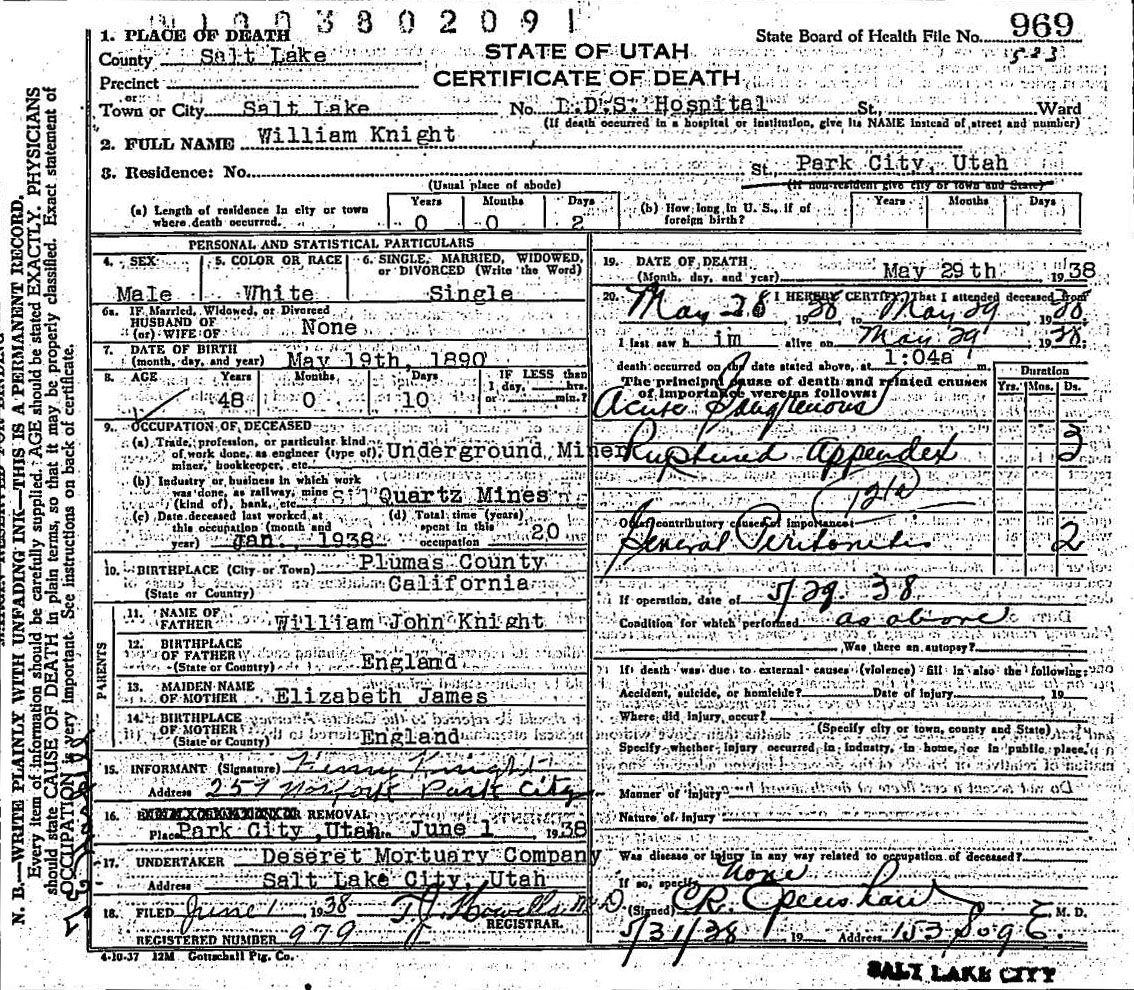 1003802091
1. PLACE OF DEATH
STATE OF UTAH
CERTIFICATE OF DEATH
State Board of Health File No. 969
523
County Salt Lake
Precinct
or
Town or City Salt Lake No. L.D.S. Hospital St., Ward
(If death occurred in a hospital or institution, give its NAME instead of street and number)
2. FULL NAME William Knight
3. Residence: No. St., Park City, Utah
(Usual place of abode) (If non-resident give city or town and State)
(a) Length of residence in city or town where death occurred. Years 0 Months 0 Days 2
(b) How long in U. S., if of foreign birth? Years Months Days
PERSONAL AND STATISTICAL PARTICULARS
4. SEX Male
5. COLOR OR RACE White
6. SINGLE, MARRIED, WIDOWED, or DIVORCED (Write the Word) Single
6a. IF Married, Widowed, or Divorced
HUSBAND OF
(or) WIFE OF None
7. DATE OF BIRTH
(month, day, and year) May 19th, 1890
8. AGE Years 48 Months 0 Days 10 IF LESS than 1 day, hrs. or min.?
9. OCCUPATION OF DECEASED
(a) Trade, profession, or particular kind of work done, as engineer (type of) miner, bookkeeper, etc. Underground Miner
(b) Industry or business in which work was done, as railway, mine (kind of), bank, etc. Sil Quartz Mines
(c) Date deceased last worked at this occupation (month and year) Jan., 1938
(d) Total time (years) spent in this occupation 20
10. BIRTHPLACE (City or Town) Plumas County
(State or Country) California
PARENTS
11. NAME OF FATHER William John Knight
12. BIRTHPLACE OF FATHER (State or County) England
13. MAIDEN NAME OF MOTHER Elizabeth James
14. BIRTHPLACE OF MOTHER (State or County) England
15. INFORMANT (Signature) Henry Knight
Address 257 Norfolk Park City
16. OR REMOVAL
Place Park City, Utah June 1 1938
17. UNDERTAKER Deseret Mortuary Company
Address Salt Lake City, Utah
18. FILED June 1 1938 T.J. Howells M.D.
REGISTRAR.
REGISTERED NUMBER 979
4-10-37 12M Gottschall Ptg. Co.
19. DATE OF DEATH
(Month, day, and year) May 29th 1938
20. I HEREBY CERTIFY, That I attended deceased from
May 28 1938 to May 29 1938
I last saw him alive on May 29 1938.
death occurred on the date stated above, at 1:04a m.
The principal cause of death and related causes of importance were as follows:
Duration
Yrs. Mos. Ds.
Acute Gangrenous
Ruptured Appendex 3
121a
Other contributory causes of importance:
General Peritonitis 2
If operation, date of 5/29 38
Condition for which performed as above
Was there an autopsy?
If death was due to external causes (violence) fill in also the following:
Accident, suicide, or homicide? Date of injury 19
Where did injury occur?
(Specify city or town, county and State)
Specify whether injury occurred in industry, in home, or in public place.
Manner of injury
Nature of injury
Was disease or injury in any way related to occupation of deceased?
If so, specify none
(Signed) C.R. Openshaw M. D.
5/31/38 19 Address 153 So 9 E.
SALT LAKE CITY
N. B.—WRITE PLAINLY WITH UNFADING INK—THIS IS A PERMANENT RECORD.
Every item of information should be carefully supplied. AGE should be stated EXACTLY. PHYSICIANS
should state CAUSE OF DEATH in plain terms, so that it may be properly classified. Exact statement of
OCCUPATION is very important. See instructions on back of certificate.